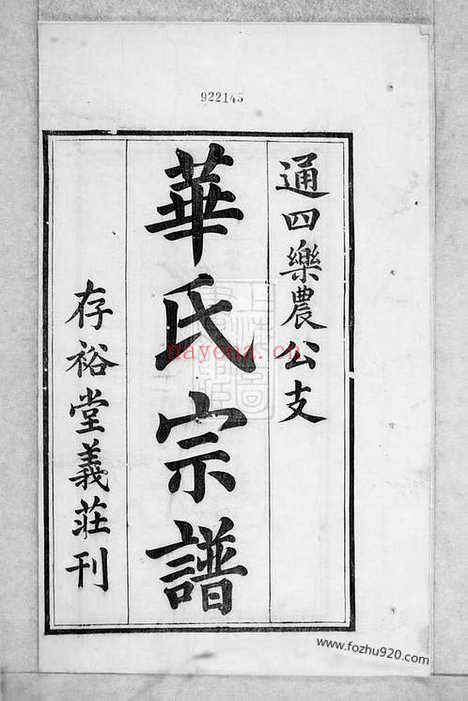 922145
通四樂農公支
華氏宗譜
存裕堂義莊刊
nayona.cn
www.fozhu920.com